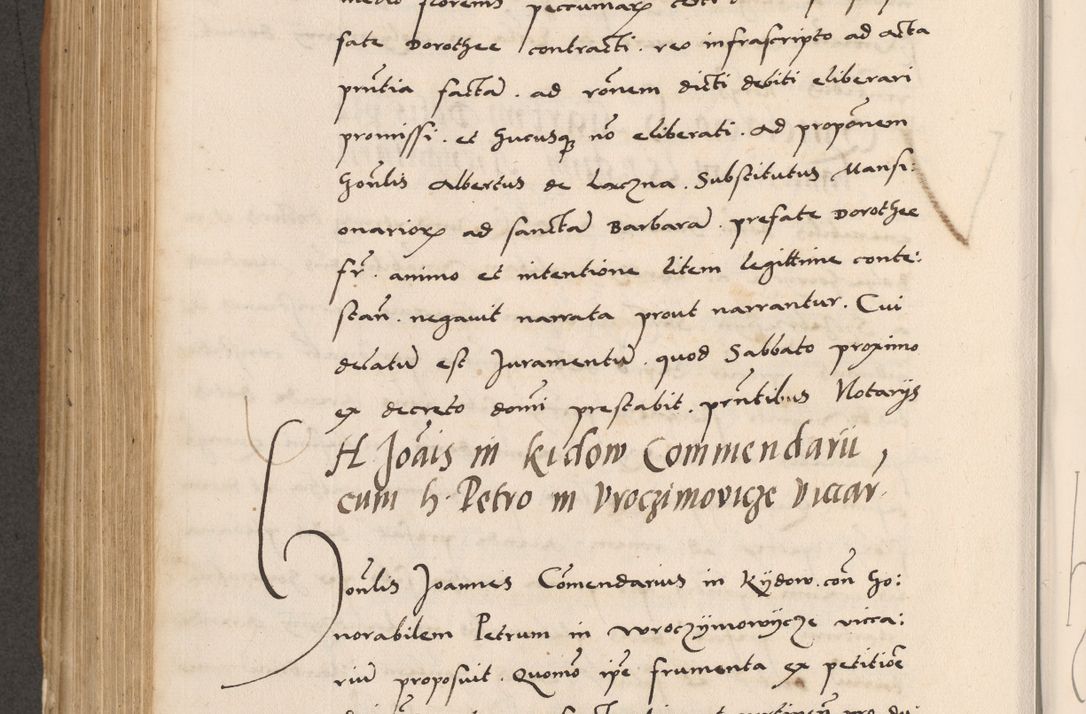 sate Dorothee contracti . reo infrascripto ad acta
pñtia factā . ad rõnem dicti debiti eliberari
promissi . et hucusqꝫ nõ eliberati . Ad propõnem
Hoñlis Albertus de Laczna . Substitutus Mansi:
onarioꝝ ad sanctā Barbarā . prefate Dorothee
fr̃ . animo et intentione litem legittime conte:
stañ . negavit narrata prout narrantur . Cui
decatū est Juramentū . quod Sabbato proximo
ex decreto domĩ prestabit . pñtibus Notarijs
H Joãis in Kidow Commendarii
cum h. Petro in Vroczimovicze viccar̃.
Hoñlis Joannes Cõmendarius in Kydow . coñ ho:
norabilem Petrum in Wroczymowycze vicca:
riū proposuit . Quomõ ipe frumenta ex petitiõe